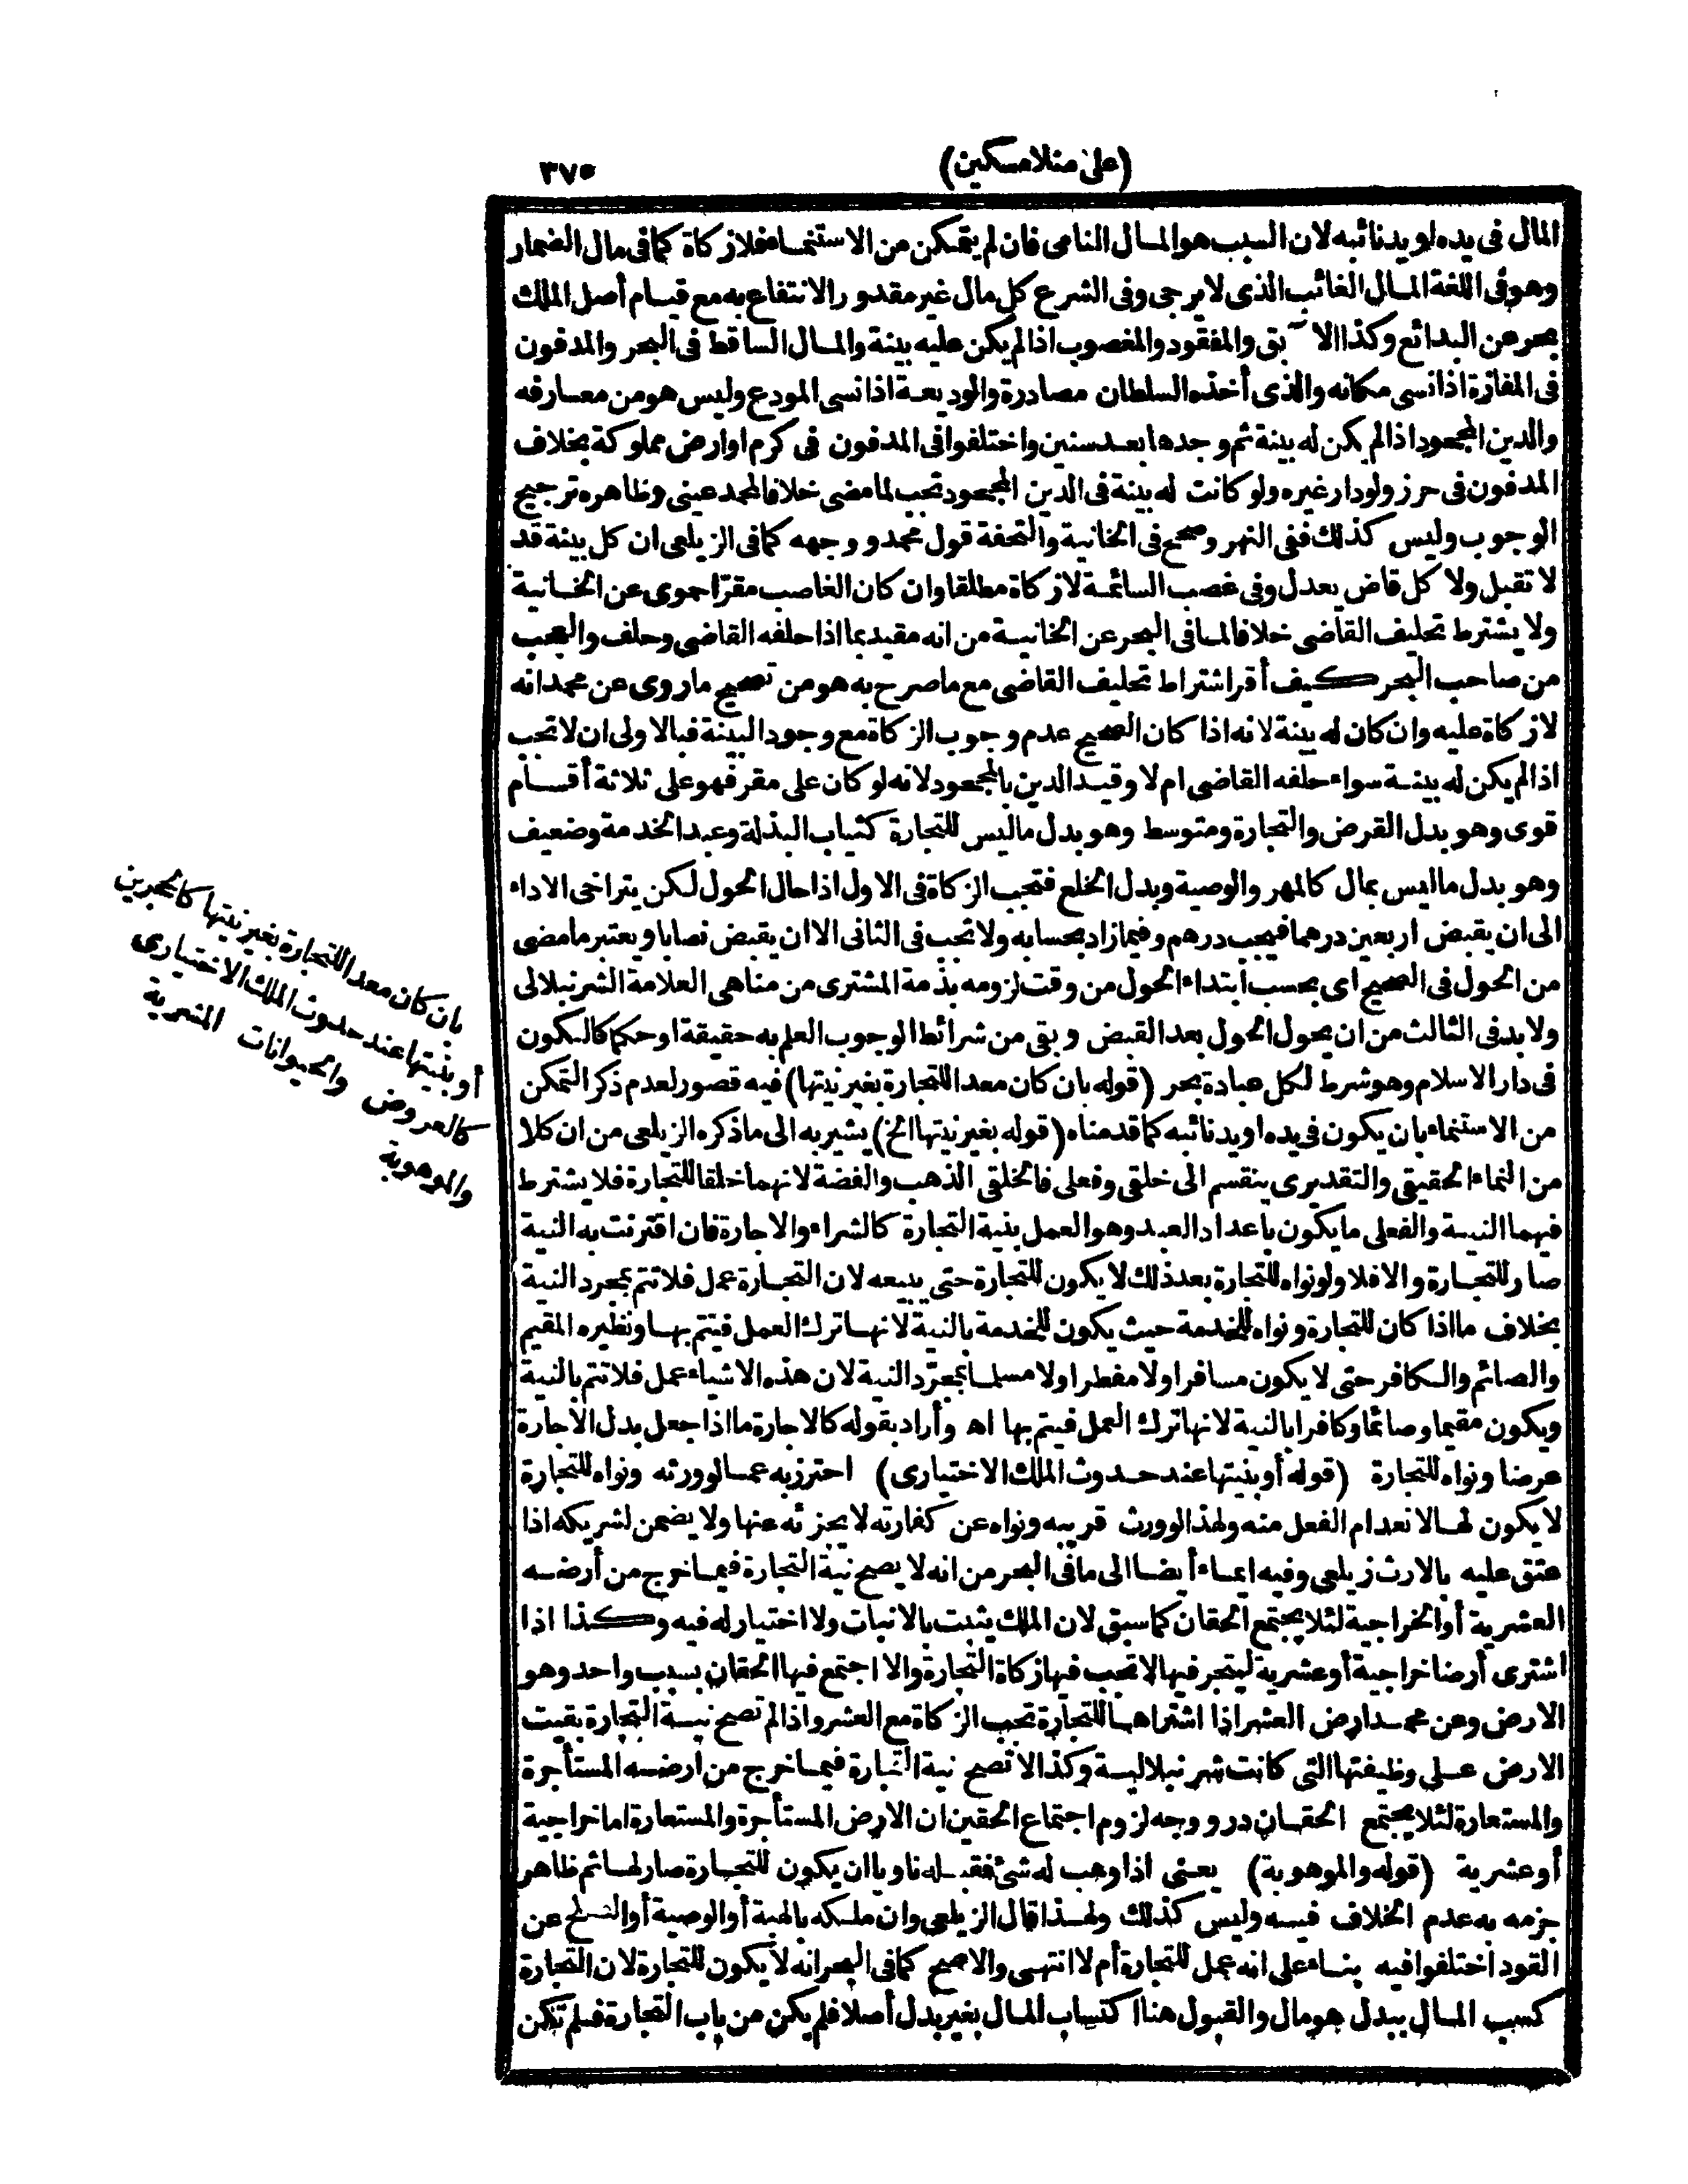 (على منلا مسكين)
٣٧٥
المال فى يده او يد نائبه لان السبب هو المال النامى فان لم يتمكن من الاستنماء فلا زكاة كما فى مال الضمار
وهو فى اللغة المال الغائب الذى لا يرجى وفى الشرع كل مال غير مقدور الانتفاع به مع قيام أصل الملك
بحر عن البدائع وكذا الا آبق والمفقود والمغصوب اذا لم يكن عليه بينة والمال الساقط فى البحر والمدفون
فى المفازة اذا نسى مكانه والذى أخذه السلطان مصادرة والوديعة اذا نسى المودع وليس هو من معارفه
والدين المجحود اذا لم يكن له بينة ثم وجدها بعد سنين واختلفوا فى المدفون فى كرم او ارض مملوكة بخلاف
المدفون فى حرز ولو دار غيره ولو كانت له بينة فى الدين المجحود تجب لما مضى خلافا لمحمد عينى وظاهره ترجيح
الوجوب وليس كذلك ففى النهر وصحح فى الخانية والتحفة قول محمد ووجهه كما فى الزيلعى ان كل بينة قد
لا تقبل ولا كل قاض يعدل وفى غصب السائمة لا زكاة مطلقا وان كان الغاصب مقرّا حموى عن الخانية
ولا يشترط تحليف القاضى خلافا لما فى البحر عن الخانية من انه مقيد بما اذا حلفه القاضى وحلف والعجب
من صاحب البحر كيف أقر اشتراط تحليف القاضى مع ما صرح به هو من تصحيح ما روى عن محمد انه
لا زكاة عليه وان كان له بينة لانه اذا كان الصحيح عدم وجوب الزكاة مع وجود البينة فبالاولى ان لا تجب
اذا لم يكن له بينة سواء حلفه القاضى ام لا وقيد الدين بالمجحود لانه لو كان على مقر فهو على ثلاثة أقسام
قوى وهو بدل القرض والتجارة ومتوسط وهو بدل ما ليس للتجارة كثياب البذلة وعبد الخدمة وضعيف
وهو بدل ما ليس بمال كالمهر والوصية وبدل الخلع فتجب الزكاة فى الاول اذا حال الحول لكن يتراخى الاداء
الى ان يقبض اربعين درهما فيجب درهم وفيما زاد بحسابه ولا تجب فى الثانى الا ان يقبض نصابا ويعتبر ما مضى
من الحول فى الصحيح اى بحسب ابتداء الحول من وقت لزومه بذمة المشترى من مناهى العلامة الشرنبلالى
ولا بد فى الثالث من ان يحول الحول بعد القبض وبقى من شرائط الوجوب العلم به حقيقة او حكما كالكون
فى دار الاسلام وهو شرط لكل عبادة بحر (قوله بان كان معدا للتجارة بغير نيتها) فيه قصور لعدم ذكر التمكن
من الاستنماء بان يكون فى يده او يد نائبه كما قدمناه (قوله بغير نيتها الخ) يشير به الى ما ذكره الزيلعى من ان كلا
من النماء الحقيقى والتقديرى ينقسم الى خلقى وفعلى فالخلقى الذهب والفضة لانهما خلقا للتجارة فلا يشترط
فيهما النية والفعلى ما يكون باعداد العبد وهو العمل بنية التجارة كالشراء والاجارة فان اقترنت به النية
صار للتجارة والا فلا ولو نواه للتجارة بعد ذلك لا يكون للتجارة حتى يبيعه لان التجارة عمل فلا تتم بمجرد النية
بخلاف ما اذا كان للتجارة ونواه للخدمة حيث يكون للخدمة بالنية لانها ترك العمل فتتم بها ونظيره المقيم
والصائم والكافر حتى لا يكون مسافرا ولا مفطرا ولا مسلما بمجرّد النية لان هذه الاشياء عمل فلا تتم بالنية
ويكون مقيما وصائما وكافرا بالنية لانها ترك العمل فيتم بها اه وأراد بقوله كالاجارة ما اذا جعل بدل الاجارة
عرضا ونواه للتجارة (قوله أو بنيتها عند حدوث الملك الاختيارى) احترز به عما لو ورثه ونواه للتجارة
لا يكون لها لانعدام الفعل منه ولهذا لو ورث قريبه ونواه عن كفارته لا يجزئه عنها ولا يضمن لشريكه اذا
عتق عليه بالارث زيلعى وفيه ايماء أيضا الى ما فى البحر من انه لا يصح نية التجارة فيما خرج من أرضه
العشرية أو الخراجية لئلا يجتمع الحقان كما سبق لان الملك يثبت بالانبات ولا اختيار له فيه وكذا اذا
اشترى أرضا خراجية أو عشرية ليتجر فيها لا تجب فيها زكاة التجارة والا اجتمع فيها الحقان بسبب واحد وهو
الارض وعن محمد ارض العشر اذا اشتراها للتجارة تجب الزكاة مع العشر واذا لم تصح نية التجارة بقيت
الارض على وظيفتها التى كانت شرنبلالية وكذا لا تصح نية التجارة فيما خرج من ارضه المستأجرة
والمستعارة لئلا يجتمع الحقان در ووجه لزوم اجتماع الحقين ان الارض المستأجرة والمستعارة اما خراجية
أو عشرية (قوله والموهوبة) يعنى اذا وهب له شئ فقبله ناويا ان يكون للتجارة صار لها ثم ظاهر
جزمه به عدم الخلاف فيه وليس كذلك ولهذا قال الزيلعى وان ملكه بالهبة أو الوصية أو الصلح عن
القود اختلفوا فيه بناء على انه عمل للتجارة أم لا انتهى والاصح كما فى البحر انه لا يكون للتجارة لان التجارة
كسب المال ببدل هو مال والقبول هنا اكتساب المال بغير بدل أصلا فلم يكن من باب التجارة فلم تكن
بان كان معدا للتجارة بغير نيتها كالحجرين
أو بنيتها عند حدوث الملك الاختيارى
كالعروض والحيوانات المشرية
والموهوبة